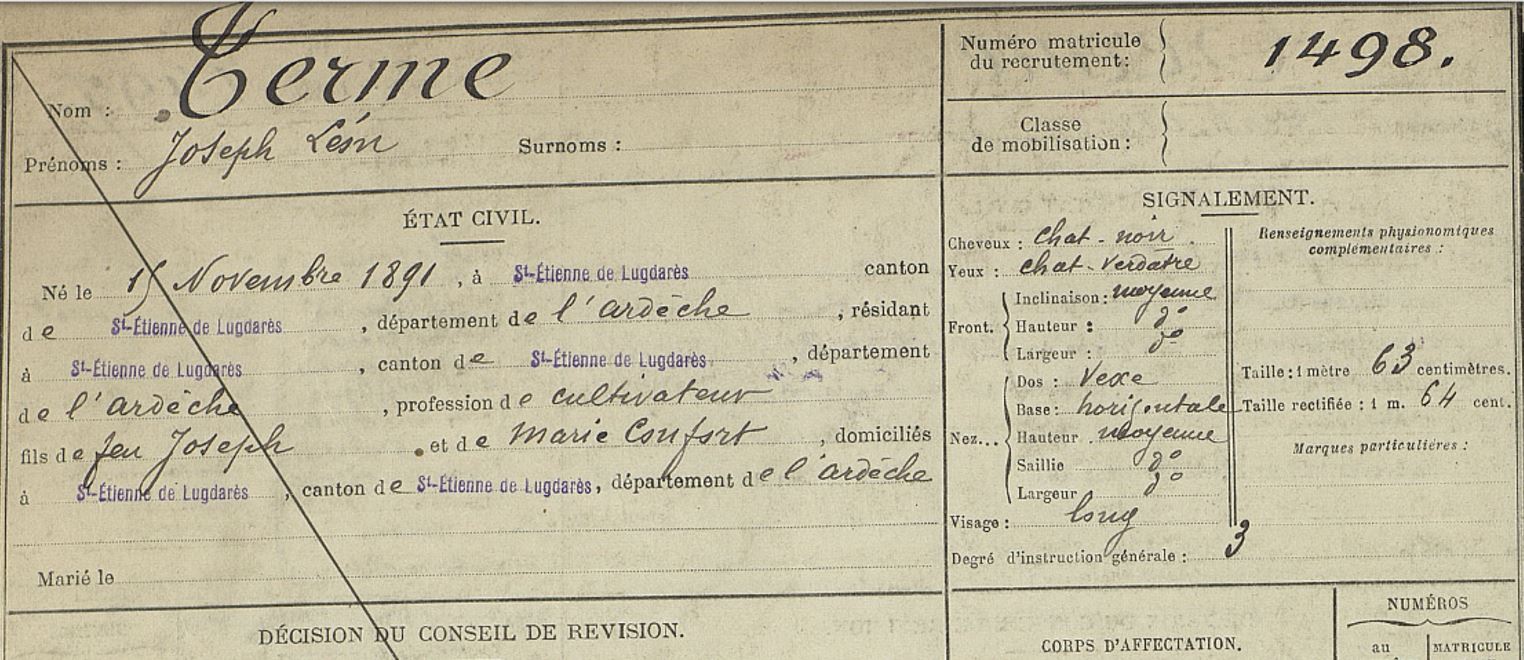 Nom : Terme
Prénoms : Joseph Léon Surnoms :
Numéro matricule du recrutement : 1498.
Classe de mobilisation :
ÉTAT CIVIL.
Né le 15 Novembre 1891, à St-Étienne de Lugdarès canton
de St-Étienne de Lugdarès, département de l'ardèche, résidant
à St-Étienne de Lugdarès, canton de St-Étienne de Lugdarès, département
de l'ardèche, profession de cultivateur
fils de feu Joseph et de Marie Confort, domiciliés
à St-Étienne de Lugdarès, canton de St-Étienne de Lugdarès, département de l'ardèche
Marié le
DÉCISION DU CONSEIL DE REVISION.
SIGNALEMENT.
Cheveux : chat-noir
Yeux : chat-verdatre
Front. Inclinaison : moyenne
Hauteur : do
Largeur : do
Nez... Dos : Vexe
Base : horizontale
Hauteur moyenne
Saillie do
Largeur do
Visage : long
Degré d'instruction générale : 3
Renseignements physionomiques
complémentaires :
Taille : 1 mètre 63 centimètres.
Taille rectifiée : 1 m. 64 cent.
Marques particulières :
CORPS D'AFFECTATION.
NUMÉROS
au MATRICULE